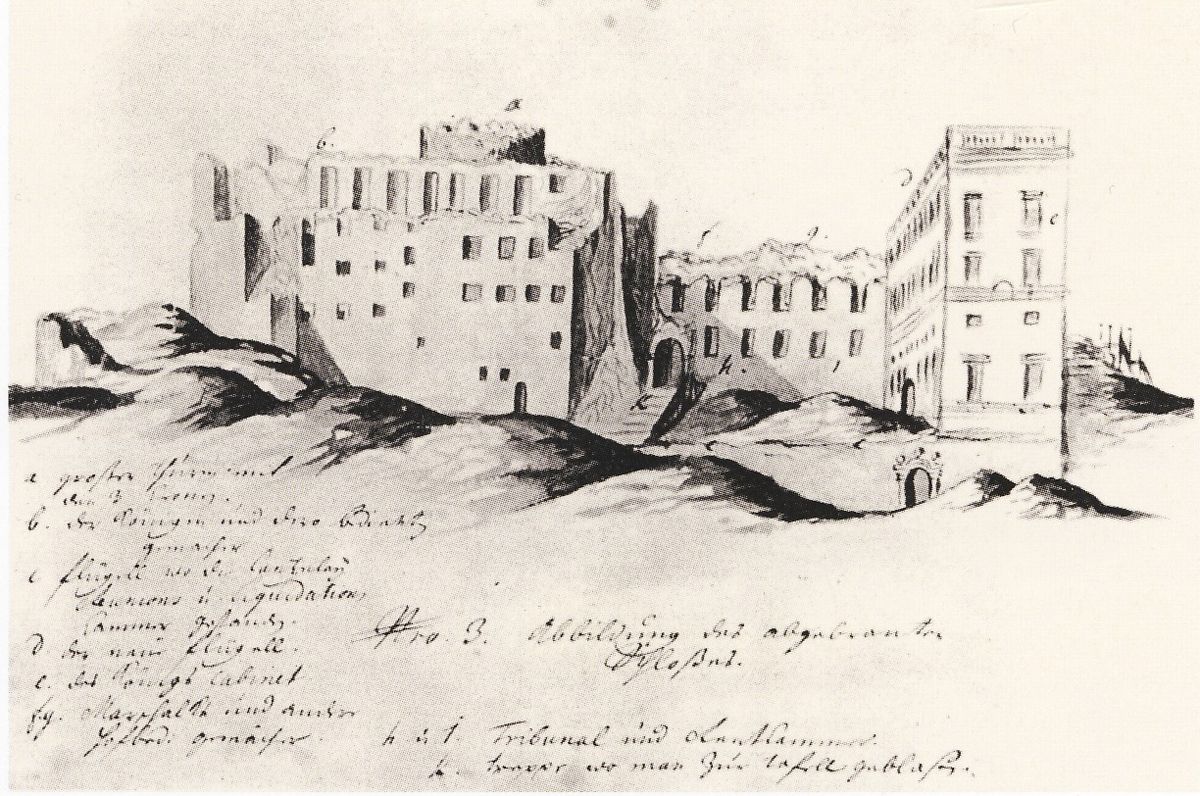 a
b.
d
e
f
g.
h.
i
k
a großer Thurm mit
den 3 Kronen.
b. der Königin und dero bedient
gemächer
c flügell wo die Cantzleÿ
Reunions u. Liquidations
Cammer gestanden.
d der neue flügell.
e. des Königs Cabinet
fg. Marschalls und andere
hofbed. gemächer.
Nro. 3. Abbildung des abgebranten
Schloßes.
h u i. Tribunal und
k. trappe wo man zur taffell geblaßen.